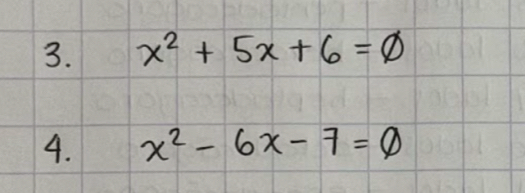 3. x² + 5x + 6 = Ø
4. x² - 6x - 7 = Ø